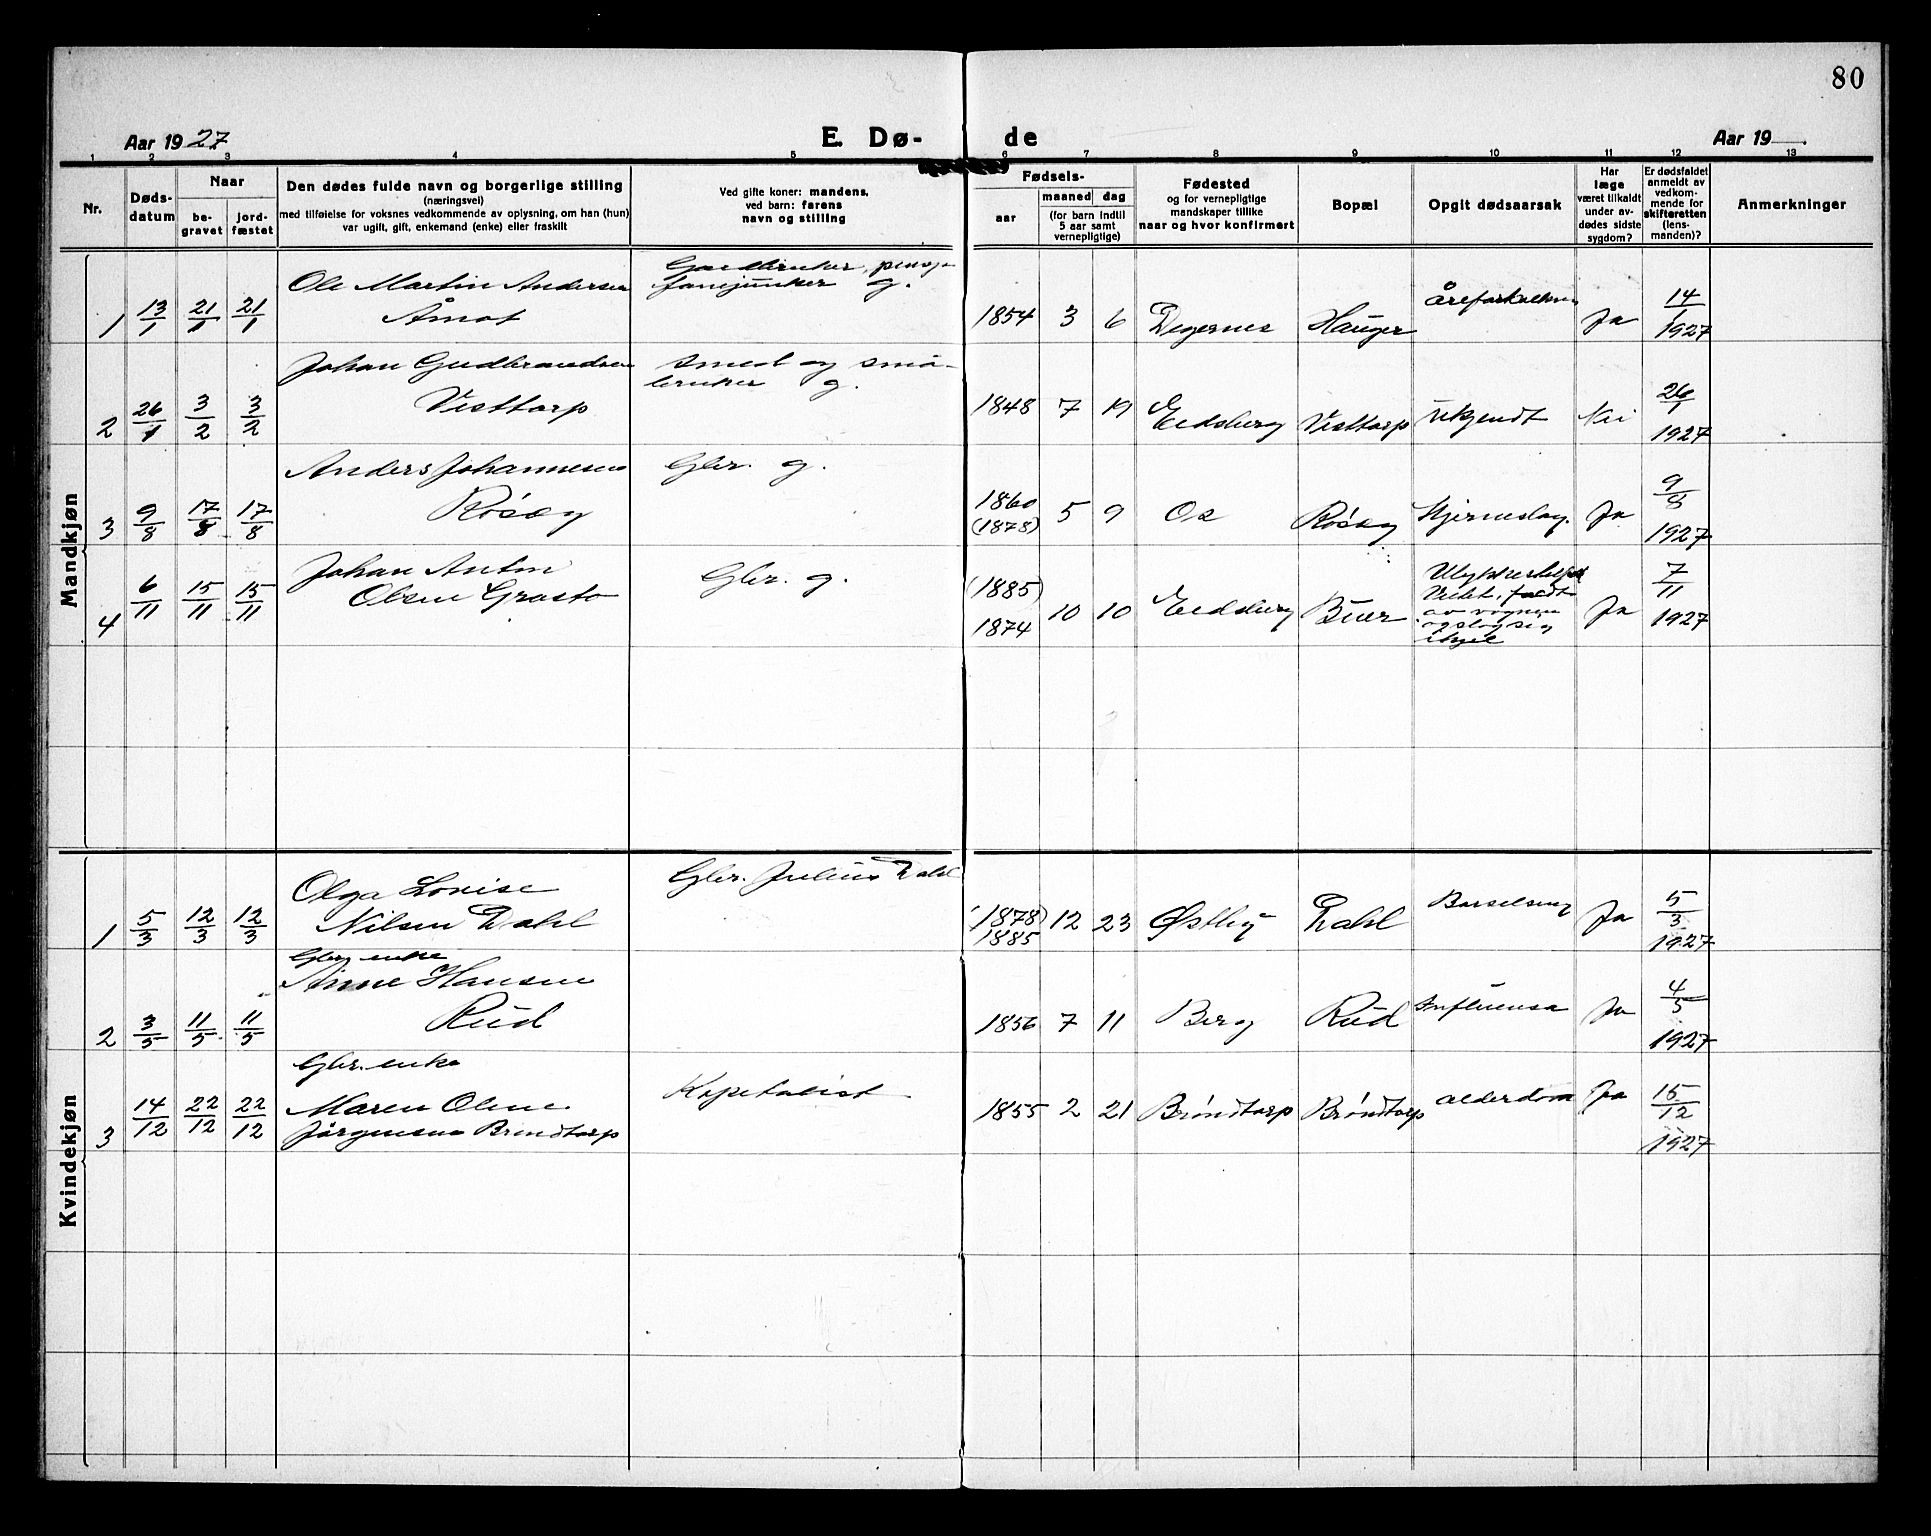 80
Aar 1927
E. Dø-
de
Aar 19
1 2 3 4 5 6 7 8 9 10 11 12 13
Nr.
Døds-
datum
Naar
be-
gravet
jord-
fæstet
Den dødes fulde navn og borgerlige stilling
(næringsvei)
med tilføielse for voksnes vedkommende av oplysning, om han (hun)
var ugift, gift, enkemand (enke) eller fraskilt
Ved gifte koner: mandens,
ved barn: farens
navn og stilling
Fødsels-
aar
maaned dag
(for barn indtil
5 aar samt
vernepligtige)
Fødested
og for vernepligtige
mandskaper tillike
naar og hvor konfirmert
Bopæl
Opgit dødsaarsak
Har
læge
været tilkaldt
under av-
dødes sidste
sygdom?
Er dødsfaldet
anmeldt av
vedkom-
mende for
skifteretten
(lens-
manden)?
Anmerkninger
Mandkjøn
1 13/1 21/1 21/1 Ole Martin Andersen
Åmot
Gardbruker, pensj.
fanejunker g.
1854 3 6 Degernes Hauger åreforkalkning Ja 14/1 1927
2 26/1 3/2 3/2 Johan Gudbrandsen
Visttorp
smed og små-
bruker g.
1848 7 19 Eidsberg Visttorp ukjendt Nei 26/1 1927
3 9/8 17/8 17/8 Anders Johannesen
Røsæg
Gbr. g.
1860
(1878) 5 9 Os Røsæg Hjerneslag. Ja 9/8 1927
4 6/11 15/11 15/11 Johan Anton
Olsen Grasto
Gbr. g.
(1885)
1874 10 10 Eidsberg Buer
av vognen
og slog sig
ihjel
Ja 7/11 1927
Kvindekjøn
1 5/3 12/3 12/3 Olga Lovise
Nilsen Dahl
Gbr. Julius Dahl
(1878)
1885 12 23 Østby Dahl Barselseng Ja 5/3 1927
2 3/5 11/5 11/5 Gbr. enke
Anne Hansen
Rud
1856 7 11 Berg Rud Influensa Ja 4/5 1927
3 14/12 22/12 22/12 Gbr. enke
Maren Oline
Jørgensen Brøndtorp
Kapitalist
1855 2 21 Brøndtorp Brøndtorp alderdom Ja 15/12 1927